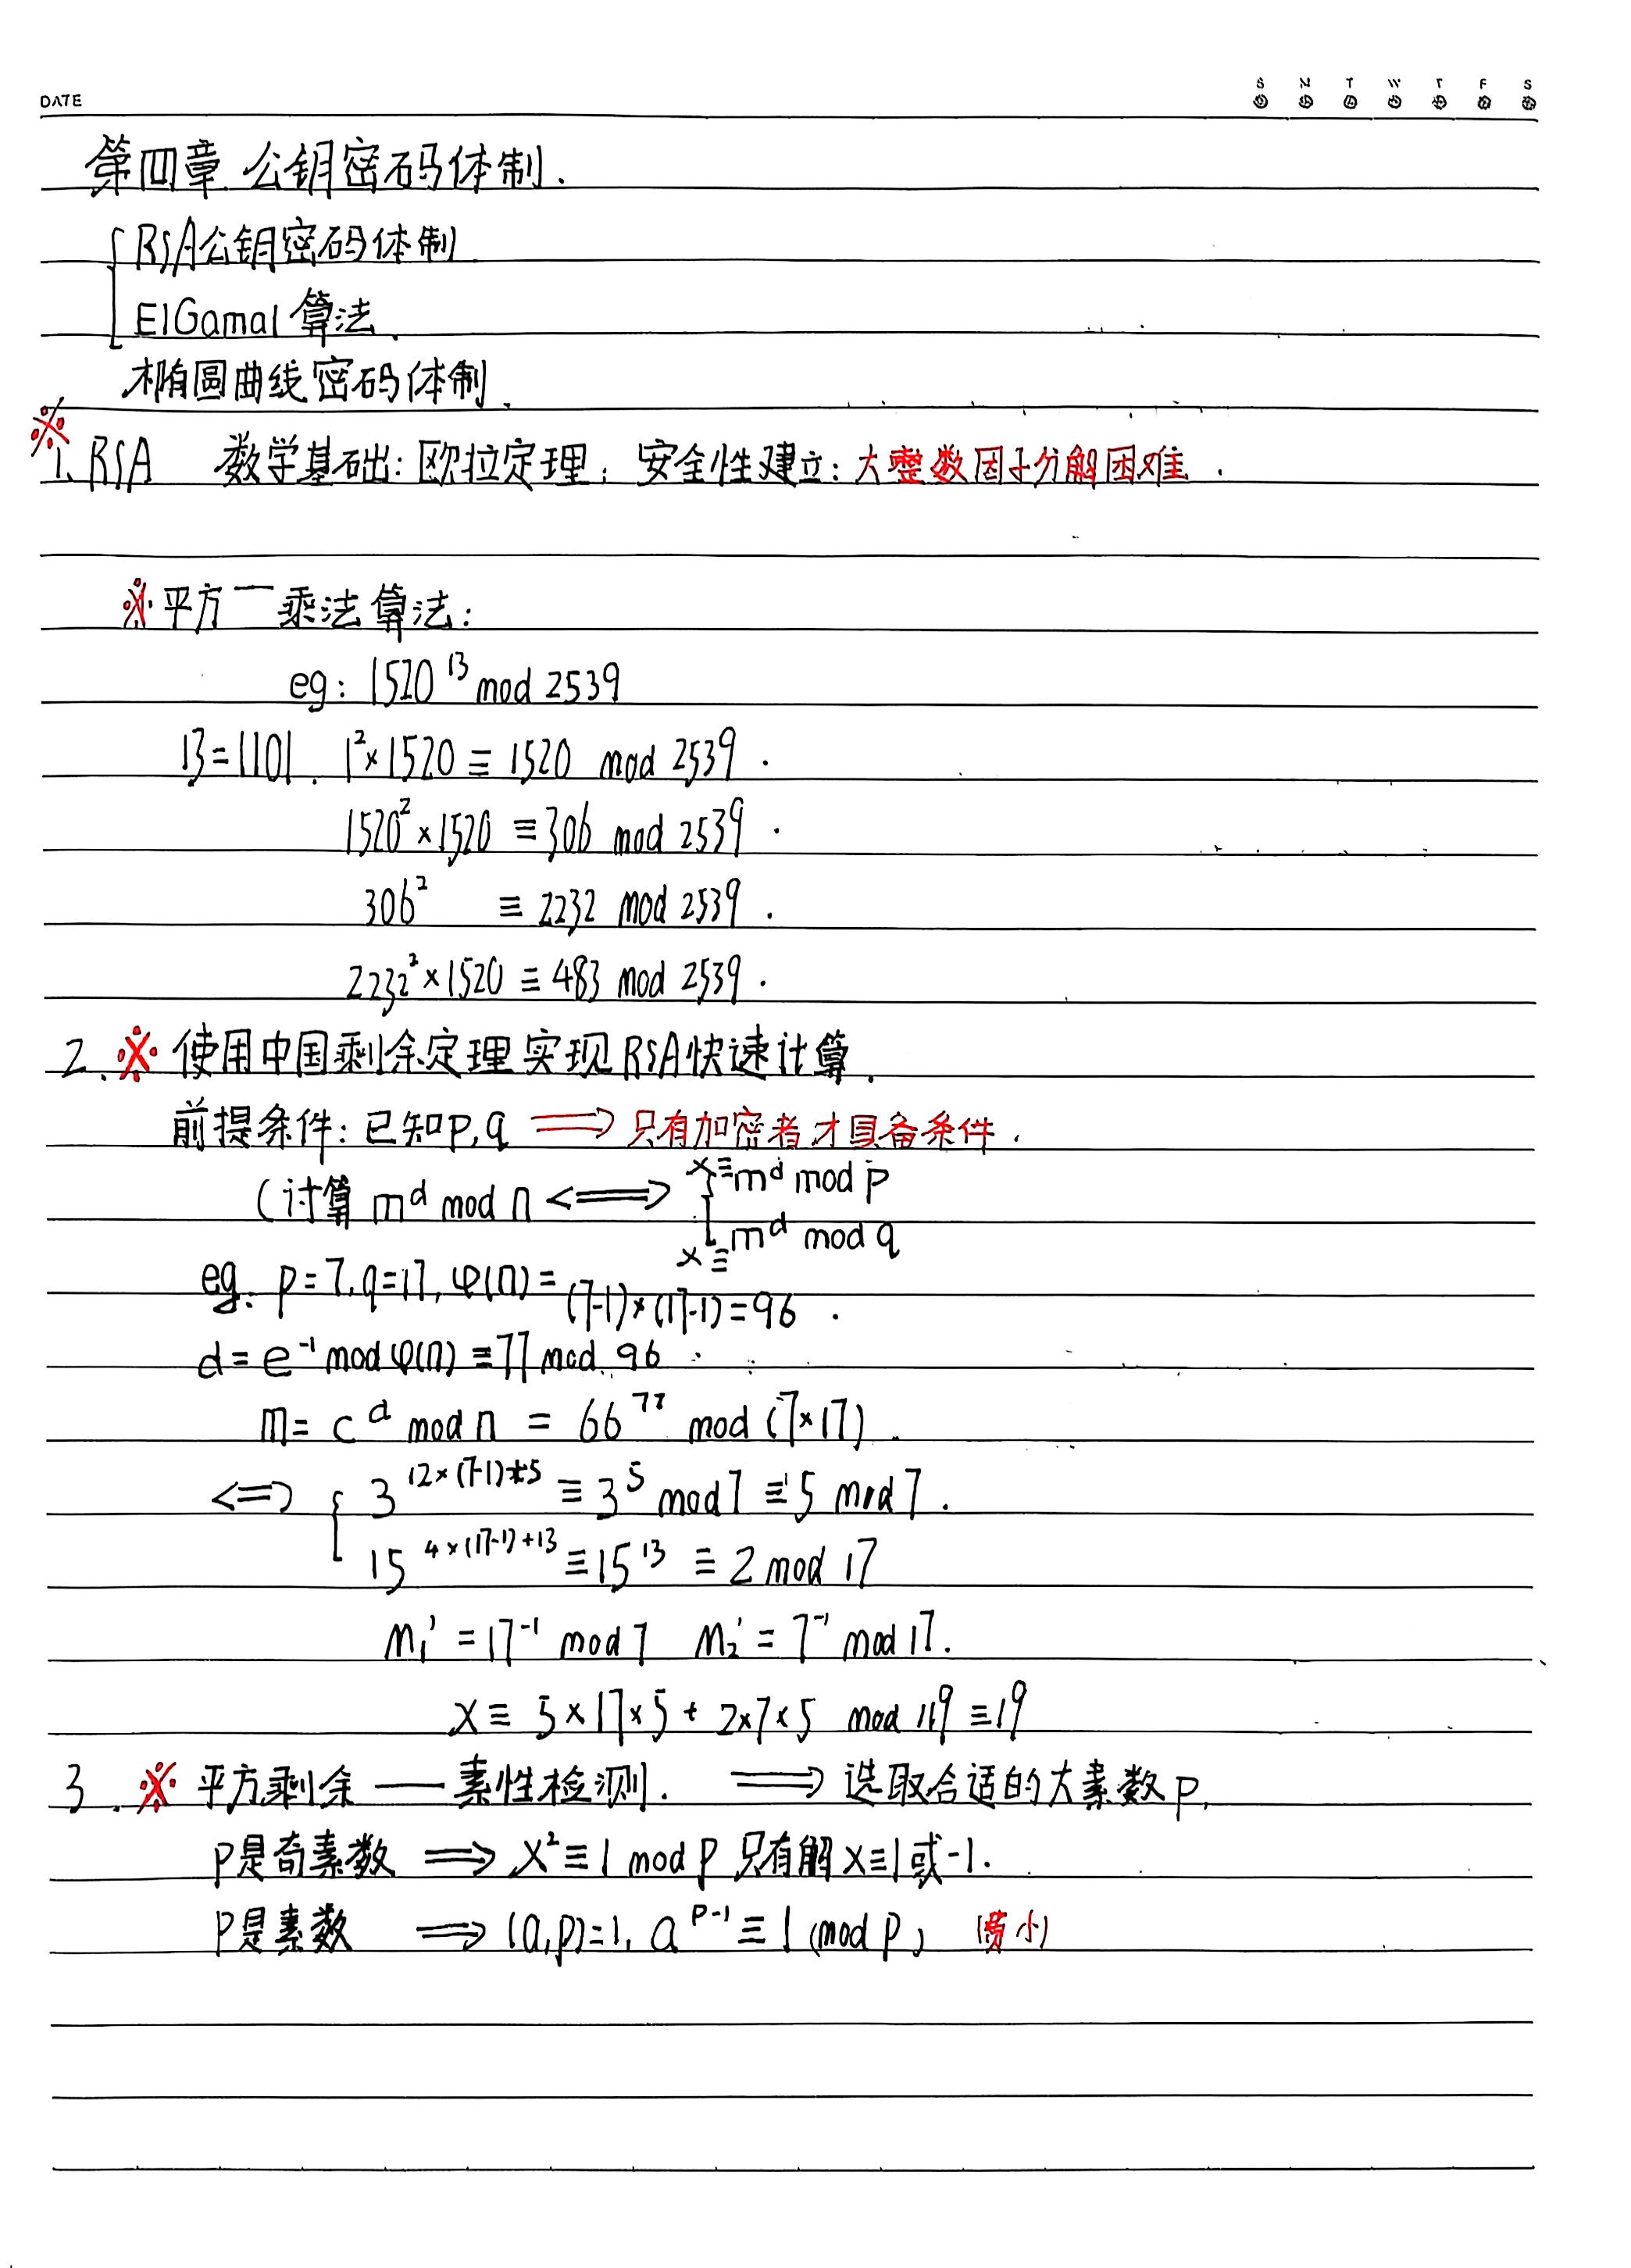 DATE
S M T W T F S
第四章 公钥密码体制.
RSA公钥密码体制
ElGamal 算法.
椭圆曲线密码体制.
※
1. RSA 数学基础: 欧拉定理; 安全性建立: 大整数因子分解困难.
※平方—乘法算法:
eg: 1520¹³ mod 2539
13=1101. 1²×1520 ≡ 1520 mod 2539.
1520²×1520 ≡ 306 mod 2539.
306² ≡ 2232 mod 2539.
2232²×1520 ≡ 483 mod 2539.
2.※ 使用中国剩余定理实现RSA快速计算.
前提条件: 已知p,q ⟹ 只有加密者才具备条件.
(计算 mᵈ mod n ⟺ { x≡mᵈ mod p
x≡mᵈ mod q
eg. p=7, q=17, φ(n)=(7-1)×(17-1)=96.
d=e⁻¹ mod φ(n) ≡77 mod 96.
m= cᵈ mod n = 66⁷⁷ mod (7×17).
⟺ { 3^(12×(7-1)+5) ≡ 3⁵ mod 7 ≡ 5 mod 7.
15^(4×(17-1)+13) ≡ 15¹³ ≡ 2 mod 17
m₁' = 17⁻¹ mod 7 m₂' = 7⁻¹ mod 17.
x≡ 5×17×5 + 2×7×5 mod 119 ≡19
3.※ 平方剩余 — 素性检测. ⟹ 选取合适的大素数p.
p是奇素数 ⟹ x²≡1 mod p 只有解 x≡1或-1.
p是素数 ⟹ (a,p)=1, a^(p-1) ≡ 1 (mod p) (费小)